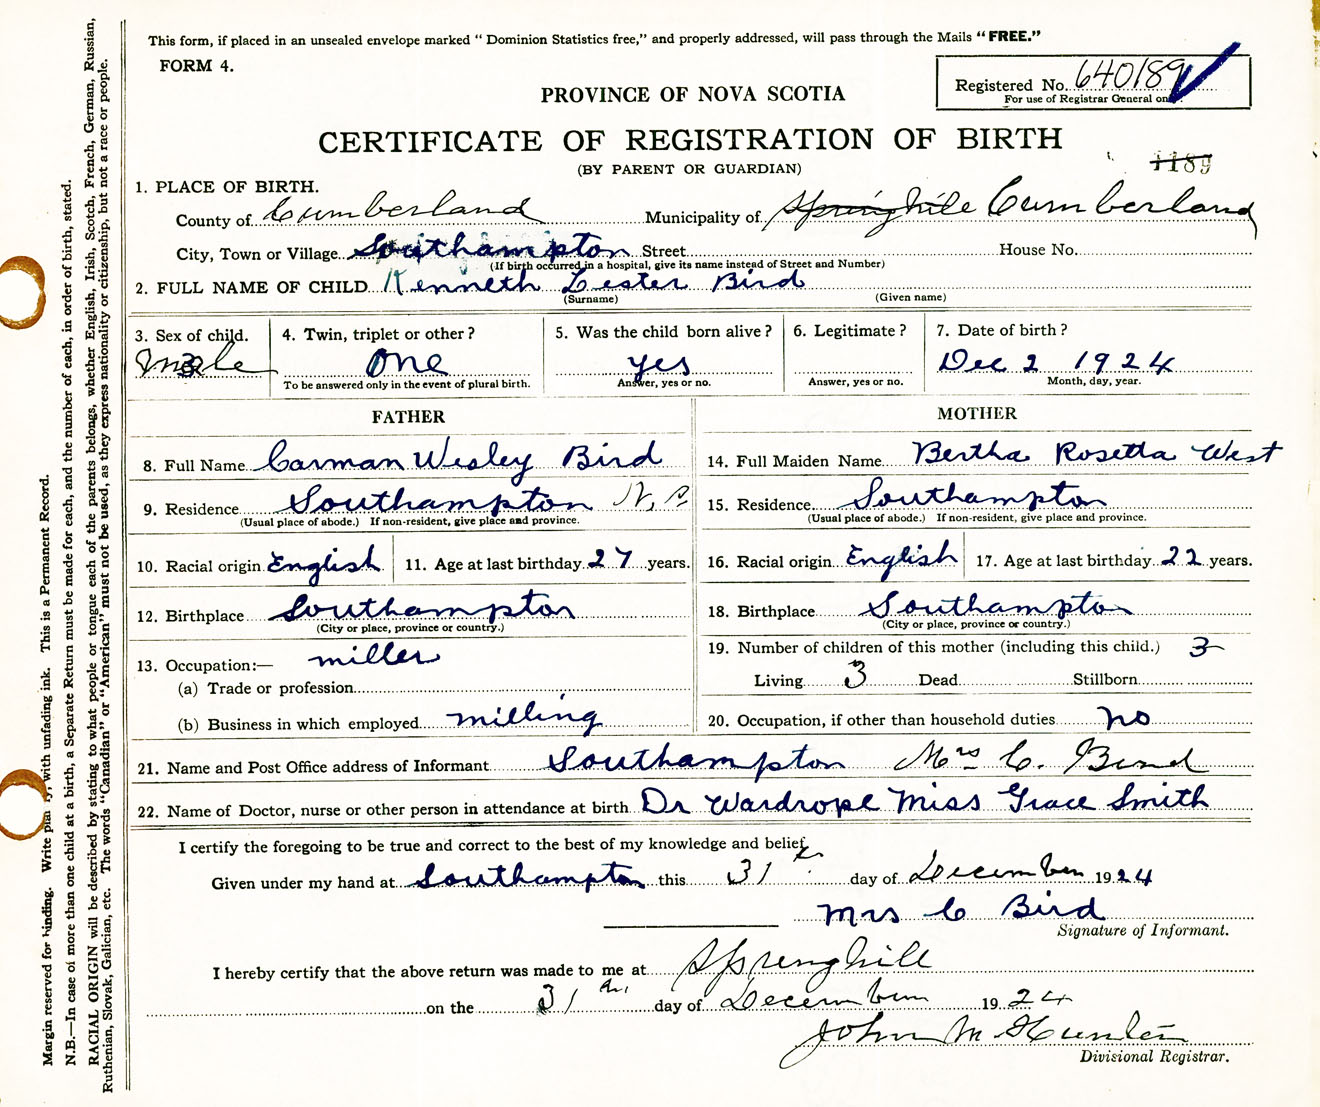 This form, if placed in an unsealed envelope marked " Dominion Statistics free," and properly addressed, will pass through the Mails "FREE."
FORM 4.
Registered No. 640189
For use of Registrar General on
PROVINCE OF NOVA SCOTIA
CERTIFICATE OF REGISTRATION OF BIRTH
(BY PARENT OR GUARDIAN)
1189
1. PLACE OF BIRTH.
County of Cumberland Municipality of Springhill Cumberland
City, Town or Village Southampton Street House No.
(If birth occurred in a hospital, give its name instead of Street and Number)
2. FULL NAME OF CHILD Kenneth Lester Bird
(Surname) (Given name)
3. Sex of child. Male
4. Twin, triplet or other? One
To be answered only in the event of plural birth.
5. Was the child born alive? yes
Answer, yes or no.
6. Legitimate?
Answer, yes or no.
7. Date of birth? Dec 2 1924
Month, day, year.
FATHER
8. Full Name Carman Wesley Bird
9. Residence Southampton N.S
(Usual place of abode.) If non-resident, give place and province.
10. Racial origin English 11. Age at last birthday 27 years.
12. Birthplace Southampton
(City or place, province or country.)
13. Occupation:— miller
(a) Trade or profession
(b) Business in which employed milling
MOTHER
14. Full Maiden Name Bertha Rosetta West
15. Residence Southampton
(Usual place of abode.) If non-resident, give place and province.
16. Racial origin English 17. Age at last birthday 22 years.
18. Birthplace Southampton
(City or place, province or country.)
19. Number of children of this mother (including this child.) 3
Living 3 Dead Stillborn
20. Occupation, if other than household duties no
21. Name and Post Office address of Informant Southampton Mrs C. Bird
22. Name of Doctor, nurse or other person in attendance at birth Dr Wardrope Miss Grace Smith
I certify the foregoing to be true and correct to the best of my knowledge and belief.
Given under my hand at Southampton this 31st day of December 1924
Mrs C Bird
Signature of Informant.
I hereby certify that the above return was made to me at Springhill
on the 31 day of December 1924
John M Hunter
Divisional Registrar.
Margin reserved for binding. Write plainly, with unfading ink. This is a Permanent Record.
N.B.—In case of more than one child at a birth, a Separate Return must be made for each, and the number of each, in order of birth, stated.
RACIAL ORIGIN will be described by stating to what people or tongue each of the parents belongs, whether English, Irish, Scotch, French, German, Russian,
Ruthenian, Slovak, Galician, etc. The words "Canadian" or "American" must not be used, as they express nationality or citizenship, but not a race or people.